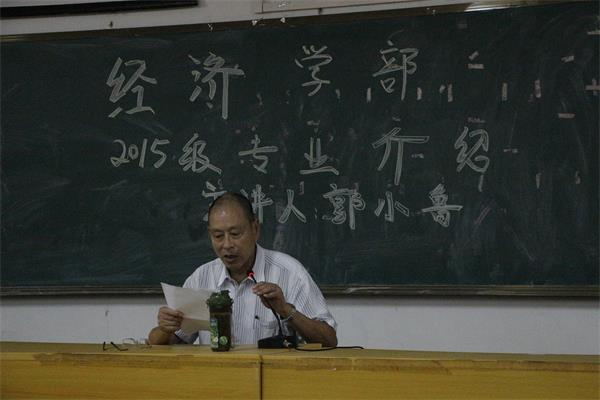 经济学部
2015级专业介绍
主讲人:郭小鲁